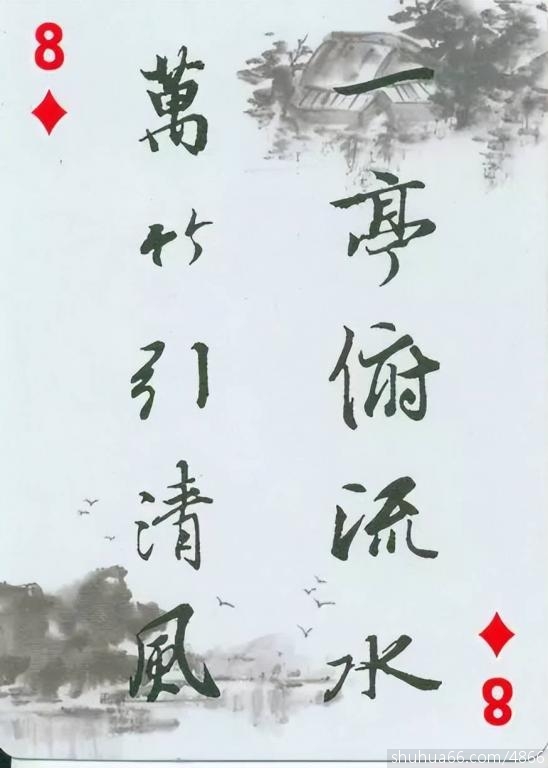 8
一亭俯流水
萬竹引清風
8
shuhua66.com/4866